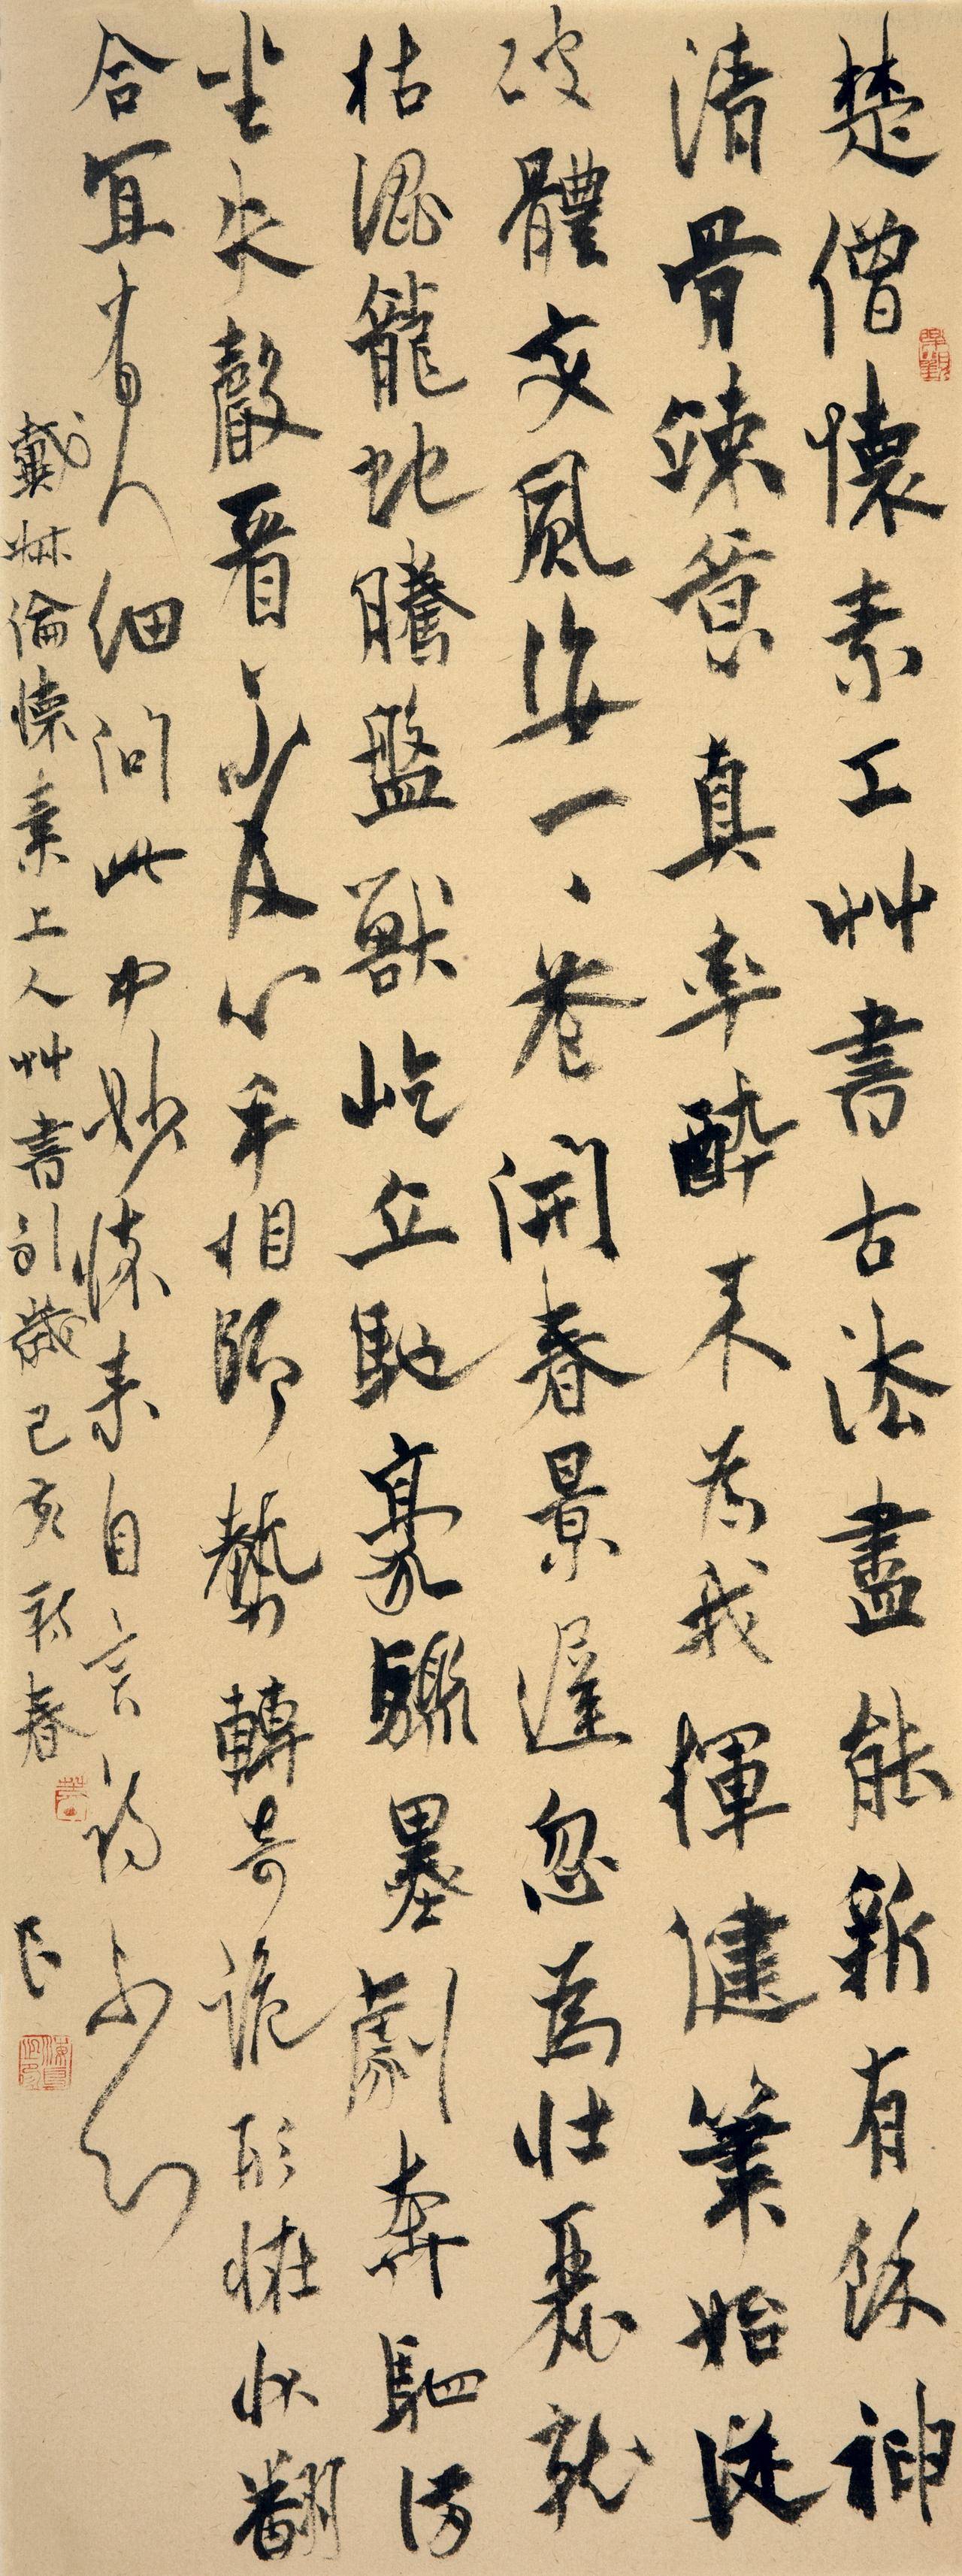 楚僧懷素工艸書古法盡能新有餘神
清骨竦質真率醉來為我揮健筆始從
破體變風姿一、花開春景遲忽為壯麗就
枯澀龍蛇騰盤獸屹立馳豪驟墨劇奔駟滿
坐失聲看不及心手相師勢轉奇詭形怪狀翻
合宜有人細問此中妙懷素自言初不知
戴叔倫懷素上人艸書引歲己亥新春